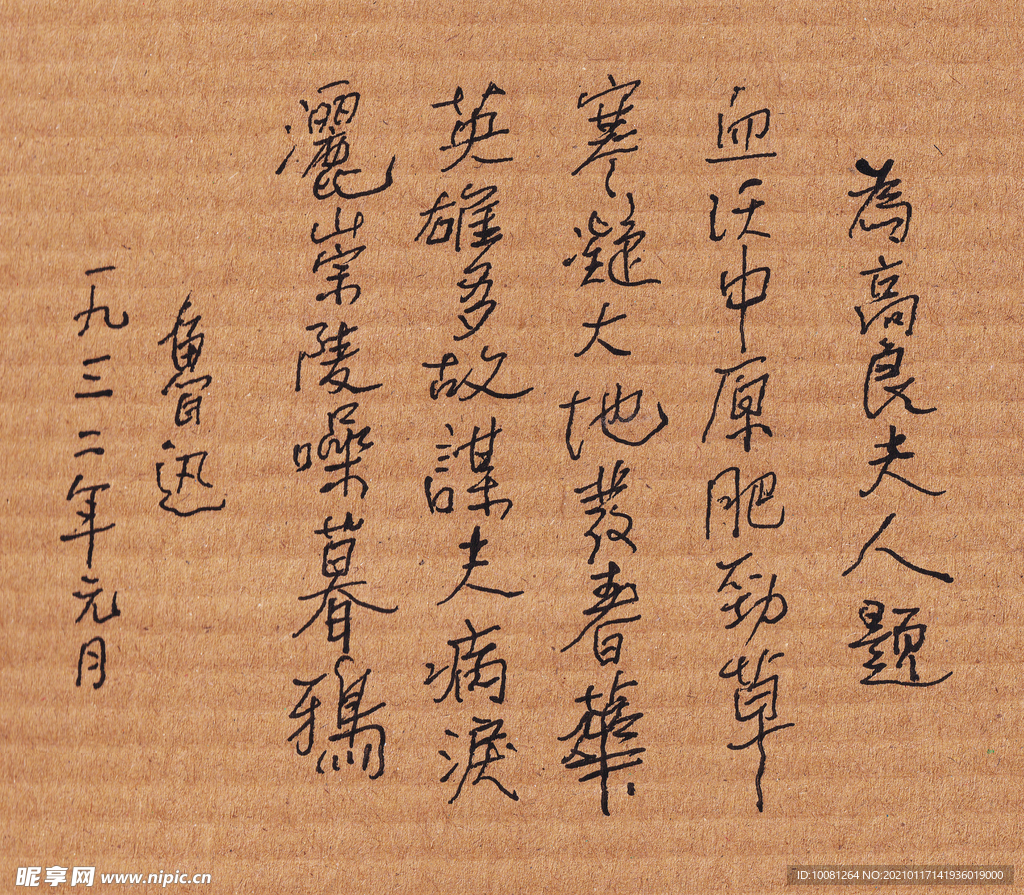 為高良夫人題
血沃中原肥勁草
寒凝大地發春華
英雄多故謀夫病
淚灑崇陵噪暮鴉
魯迅
一九三二年元月
昵享网 www.nipic.cn
ID:10081264 NO:20210117141936019000